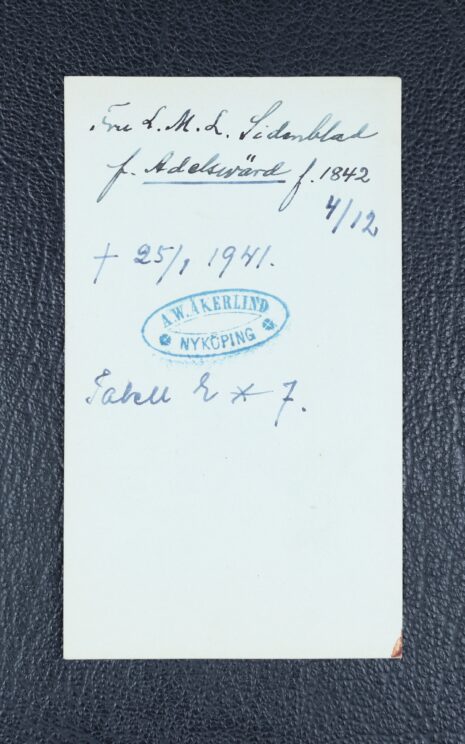 Fru L. M. L. Sidenblad
f. Adelswärd f. 1842
4/12
† 25/1 1941.
A.W. ÅKERLIND
NYKÖPING
Tabell * 7.